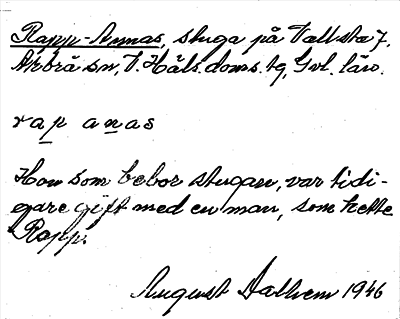 Rapp-Annas, stuga på Vallsta 7,
Arbrå sn, V. Häls. doms. tg, Gvl. län.
rap anas
Hon som bebor stugan, var tidi-
gare gift med en man, som hette
Rapp.
August Dalhem 1946